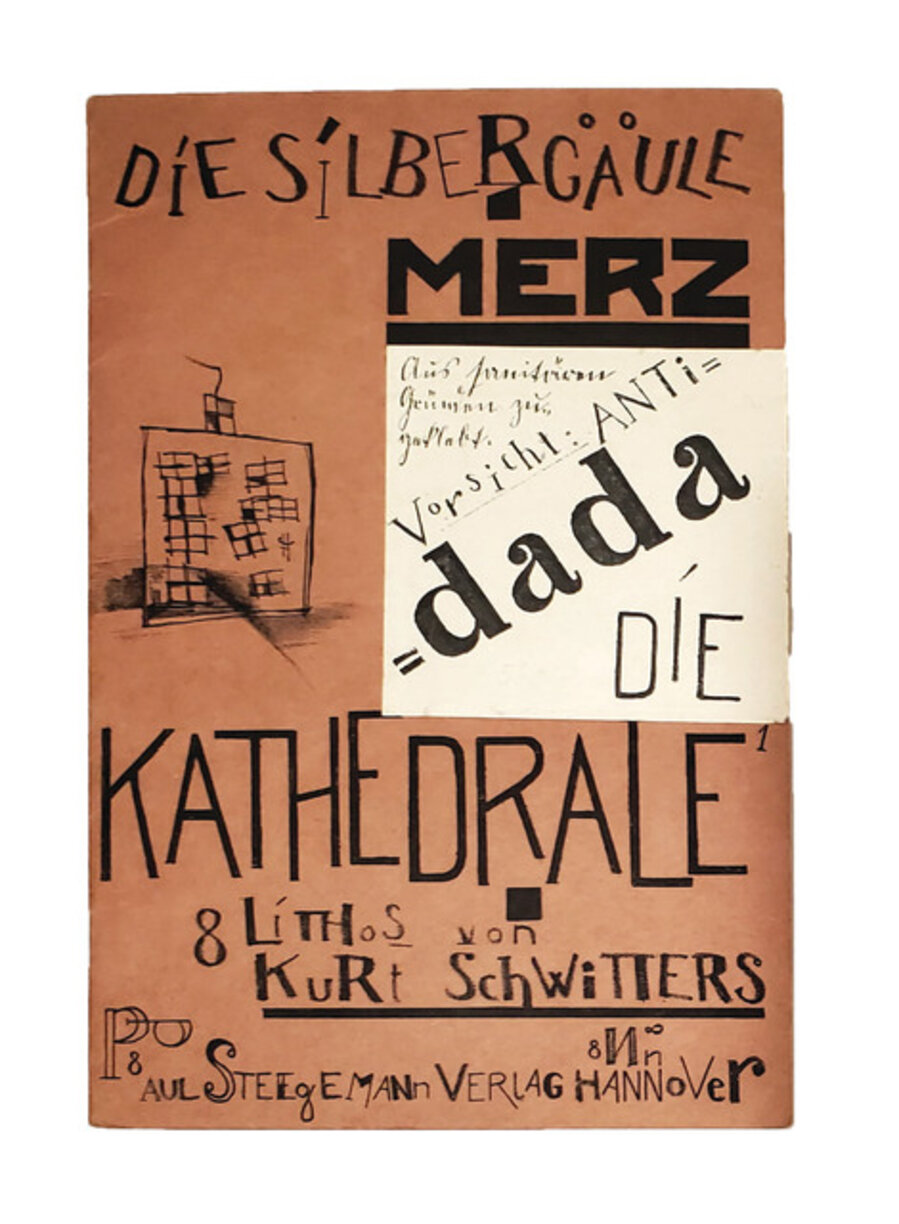 DiE SiLBERGÄULE
MERZ
Aus sanitären
Gründen zu=
geklebt.
Vorsicht: ANTi=
=dada
DiE
KATHEDRALE
1
8 LiTHoS von
KuRt SchWiTTERS
PAUL STEEgEMANn VERLAG HANNoVer